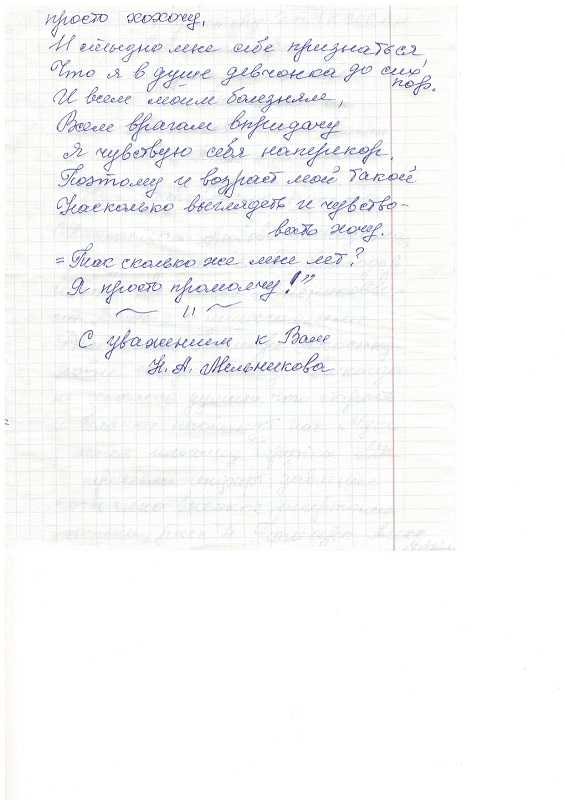 просто хохочу.
И стыдно мне себе признаться,
Что я в душе девчонка до сих
пор.
И всем моим болезням,
Всем врагам впридачу
Я чувствую себя наперекор.
Поэтому и возраст мой такой
Насколько выглядеть и чувство-
вать хочу.
= Так сколько же мне лет?
Я просто промолчу!"
~ " ~
С уважением к Вам
Н. А. Мельникова